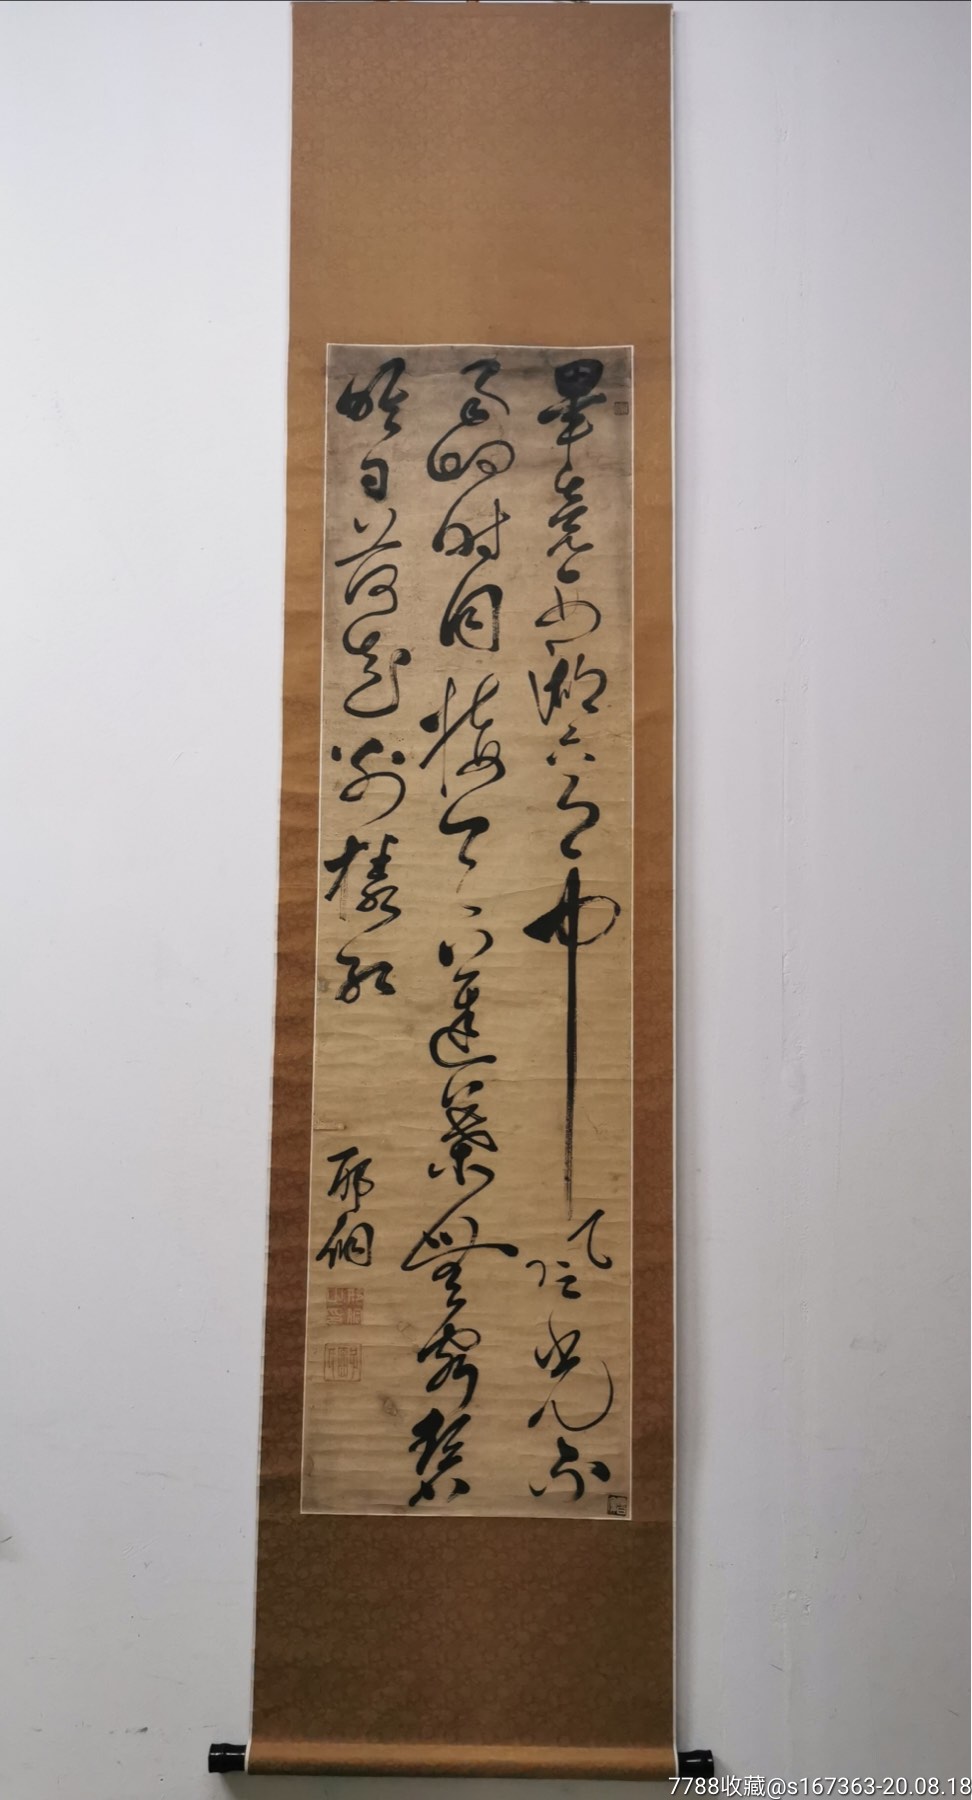 畢竟西湖六月中風光不
与四时同接天蓮葉無窮碧
映日荷花別樣紅
邢侗
7788收藏@s167363-20.08.18